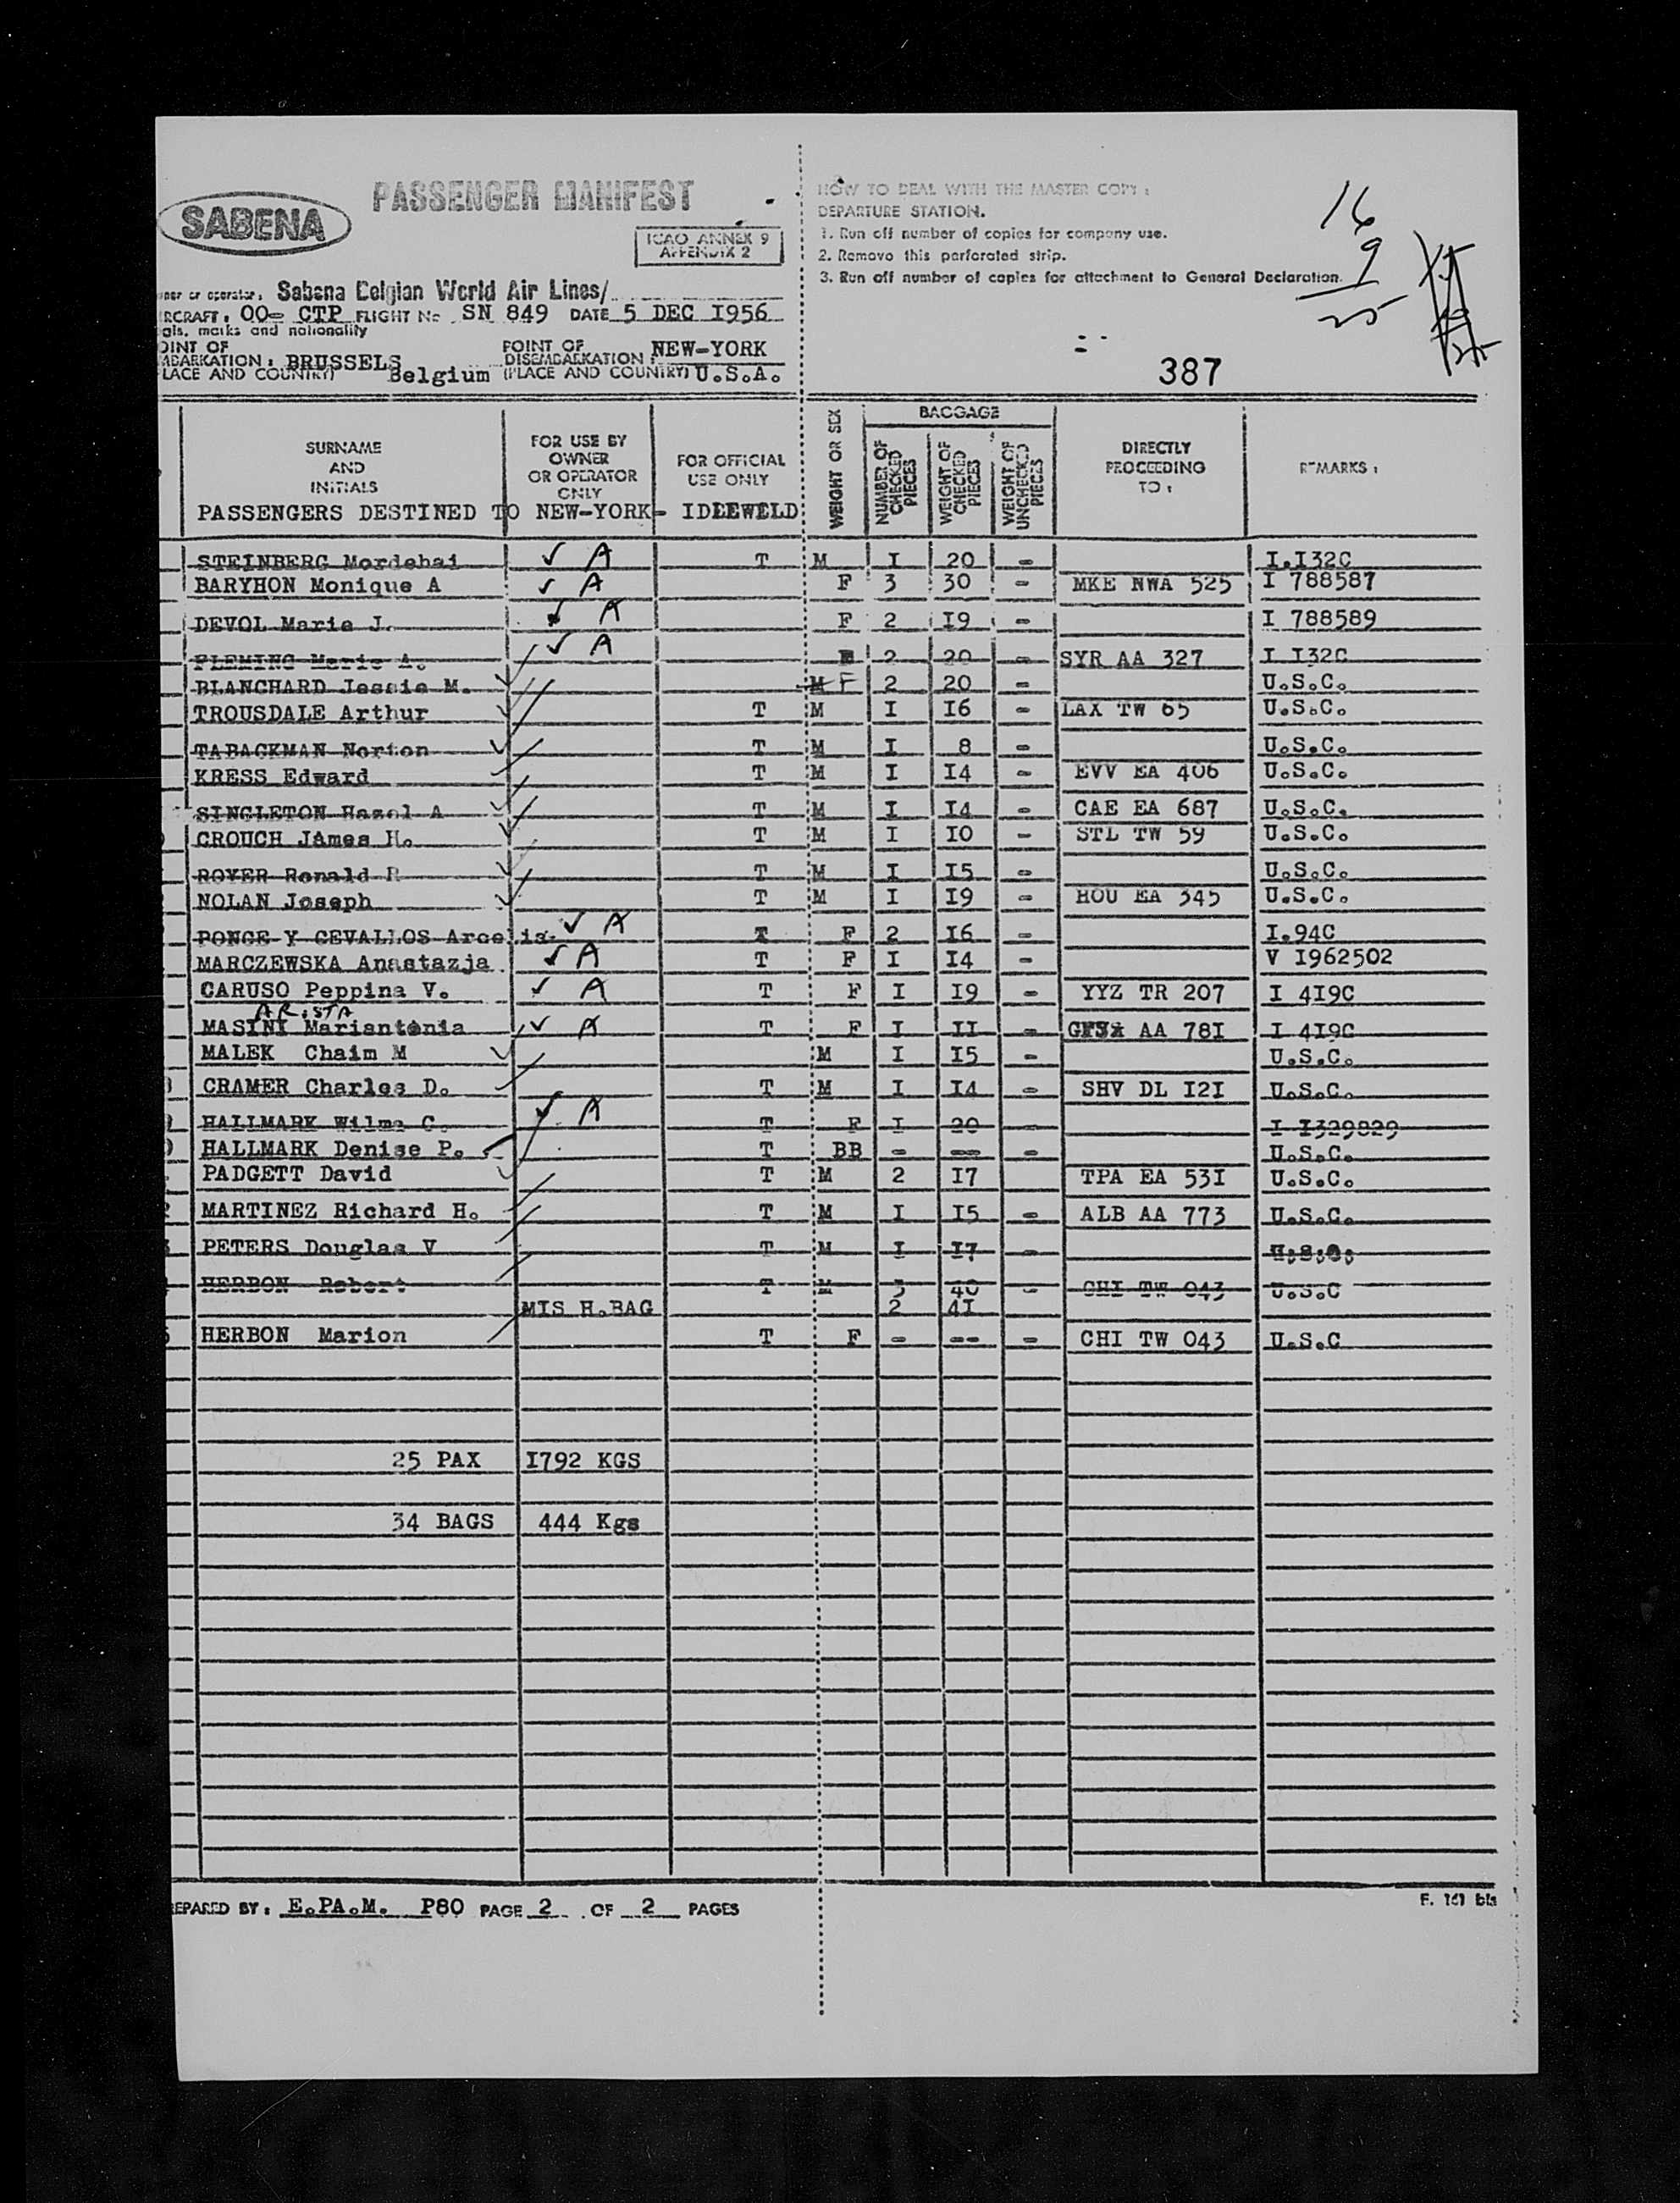 SABENA
PASSENGER MANIFEST
ICAO ANNEX 9
APPENDIX 2
ner or operator: Sabena Belgian World Air Lines/
RCRAFT: OO- CTP FLIGHT No SN 849 DATE 5 DEC I956
als, marks and nationality
OINT OF
MBARKATION: BRUSSELS
LACE AND COUNTRY) Belgium
POINT OF
DISEMBARKATION: NEW-YORK
(PLACE AND COUNTRY) U.S.A.
HOW TO DEAL WITH THE MASTER COPY:
DEPARTURE STATION.
1. Run off number of copies for company use.
2. Remove this perforated strip.
3. Run off number of copies for attachment to General Declaration.
16
9
25
387
SURNAME AND INITIALS
FOR USE BY OWNER OR OPERATOR ONLY
FOR OFFICIAL USE ONLY
WEIGHT OR SEX
BAGGAGE
NUMBER OF CHECKED PIECES
WEIGHT OF CHECKED PIECES
WEIGHT OF UNCHECKED PIECES
DIRECTLY PROCEEDING TO:
REMARKS:
PASSENGERS DESTINED TO NEW-YORK- IDLEWELD
STEINBERG Mordehai ✓ A T M I 20 - I.I32C
BARYHON Monique A ✓ A F 3 30 - MKE NWA 525 I 788587
DEVOL Marie J. ✓ A F 2 I9 - I 788589
FLEMING Marie A. ✓ A 2 20 - SYR AA 327 I I32C
BLANCHARD Jessie M. ✓ M F 2 20 - U.S.C.
TROUSDALE Arthur ✓ T M I I6 - LAX TW 65 U.S.C.
TABACKMAN Norton ✓ T M I 8 - U.S.C.
KRESS Edward T M I I4 - EVV EA 406 U.S.C.
SINGLETON Hazel A ✓ T M I I4 - CAE EA 687 U.S.C.
CROUCH James H. ✓ T M I I0 - STL TW 59 U.S.C.
ROYER Ronald R ✓ T M I I5 - U.S.C.
NOLAN Joseph ✓ T M I I9 - HOU EA 345 U.S.C.
PONCE Y CEVALLOS Arcelia ✓ A T F 2 I6 - I.94C
MARCZEWSKA Anastazja ✓ A T F I I4 - V I962502
CARUSO Peppina V. ✓ A T F I I9 - YYZ TR 207 I 4I9C
ARISTA
MASINI Mariantonia ✓ A T F I II - AA 78I I 4I9C
MALEK Chaim M ✓ M I I5 - U.S.C.
CRAMER Charles D. T M I I4 - SHV DL I2I U.S.C.
HALLMARK Wilma C. ✓ A T F I 20 - I I329829
HALLMARK Denise P. ✓ T BB - -- - U.S.C.
PADGETT David ✓ T M 2 I7 TPA EA 53I U.S.C.
MARTINEZ Richard H. T M I I5 - ALB AA 773 U.S.C.
PETERS Douglas V T M I I7 - U.S.C.
HERBON Robert T M 3 40 - CHI TW 043 U.S.C
MIS H.BAG 2 4I
HERBON Marion T F - -- - CHI TW 043 U.S.C
25 PAX I792 KGS
34 BAGS 444 Kgs
EPARED BY: E.PA.M. P80 PAGE 2 OF 2 PAGES
F. 161 bis